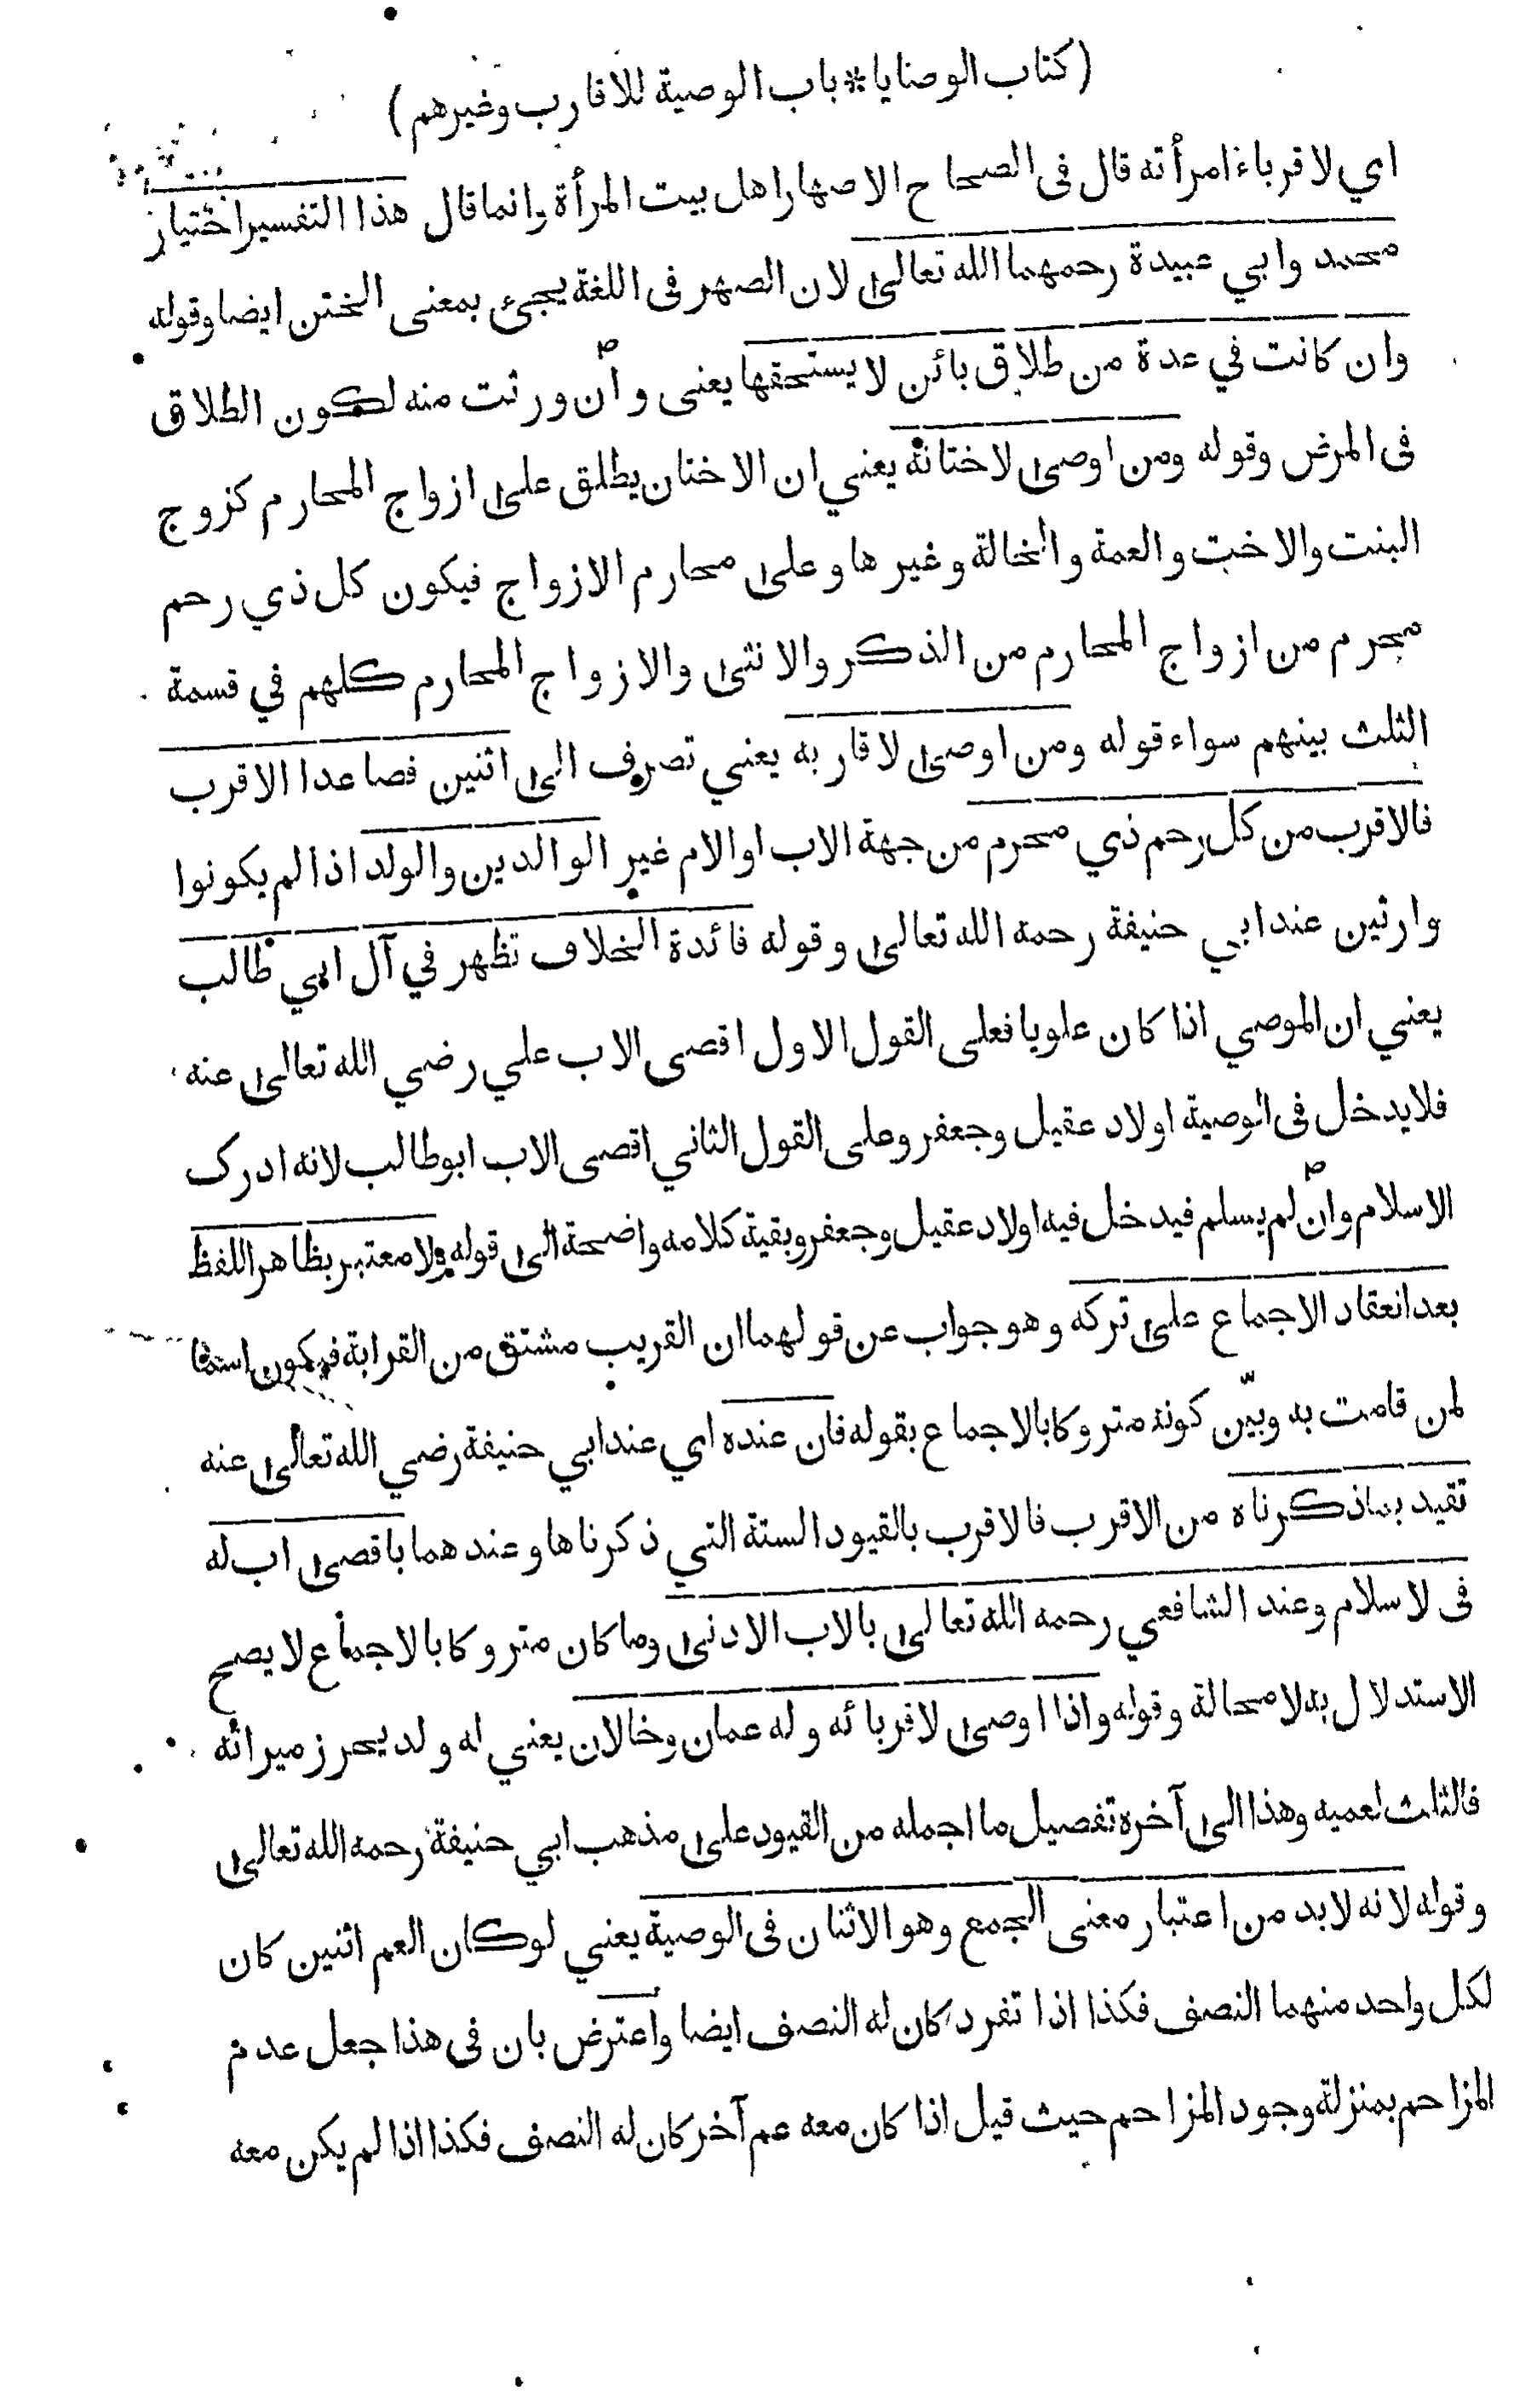 (كتاب الوصايا * باب الوصية للاقارب وغيرهم)
اي لاقرباء امرأته قال فى الصحاح الاصهار اهل بيت المرأة وانما قال هذا التفسير اختيار
محمد وابي عبيدة رحمهما الله تعالى لان الصهر فى اللغة يجئ بمعنى الختن ايضا وقوله
وان كانت في عدة من طلاق بائن لا يستحقها يعنى وان ورثت منه لكون الطلاق
فى المرض وقوله ومن اوصى لاختانه يعني ان الاختان يطلق على ازواج المحارم كزوج
البنت والاخت والعمة والخالة وغيرها وعلى محارم الازواج فيكون كل ذي رحم
محرم من ازواج المحارم من الذكر والانثى والازواج المحارم كلهم في قسمة
الثلث بينهم سواء قوله ومن اوصى لاقاربه يعني تصرف الى اثنين فصاعدا الاقرب
فالاقرب من كل رحم ذي محرم من جهة الاب او الام غير الوالدين والولد اذا لم يكونوا
وارثين عند ابي حنيفة رحمه الله تعالى وقوله فائدة الخلاف تظهر في آل ابي طالب
يعني ان الموصي اذا كان علويا فعلى القول الاول اقصى الاب علي رضي الله تعالى عنه
فلا يدخل فى الوصية اولاد عقيل وجعفر وعلى القول الثاني اقصى الاب ابوطالب لانه ادرك
الاسلام وان لم يسلم فيدخل فيه اولاد عقيل وجعفر وبقية كلامه واضحة الى قوله ولا معتبر بظاهر اللفظ
بعد انعقاد الاجماع على تركه وهو جواب عن قولهما ان القريب مشتق من القرابة فيكون اسما
لمن قامت به وبيّن كونه متروكا بالاجماع بقوله فان عنده اي عند ابي حنيفة رضي الله تعالى عنه
تقيد بماذكرناه من الاقرب فالاقرب بالقيود الستة التي ذكرناها وعندهما باقصى اب له
فى لاسلام وعند الشافعي رحمه الله تعالى بالاب الادنى وما كان متروكا بالاجماع لا يصح
الاستدلال به لا محالة وقوله واذا اوصى لاقربائه وله عمان وخالان يعني له ولد يحرز ميراثه
فالثلث لعميه وهذا الى آخره تفصيل ما اجمله من القيود على مذهب ابي حنيفة رحمه الله تعالى
وقوله لانه لابد من اعتبار معنى الجمع وهو الاثنان فى الوصية يعني لو كان العم اثنين كان
لكل واحد منهما النصف فكذا اذا تفرد كان له النصف ايضا واعترض بان فى هذا جعل عدم
المزاحم بمنزلة وجود المزاحم حيث قيل اذا كان معه عم آخر كان له النصف فكذا اذا لم يكن معه